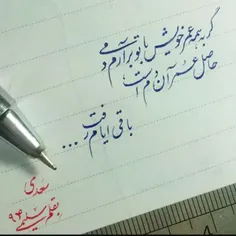 گر به همه عمر خویش با تو برآرم دمی
حاصل عمر آن دم است
باقی ایام رفت ...
سعدی
بقلم
۹۴